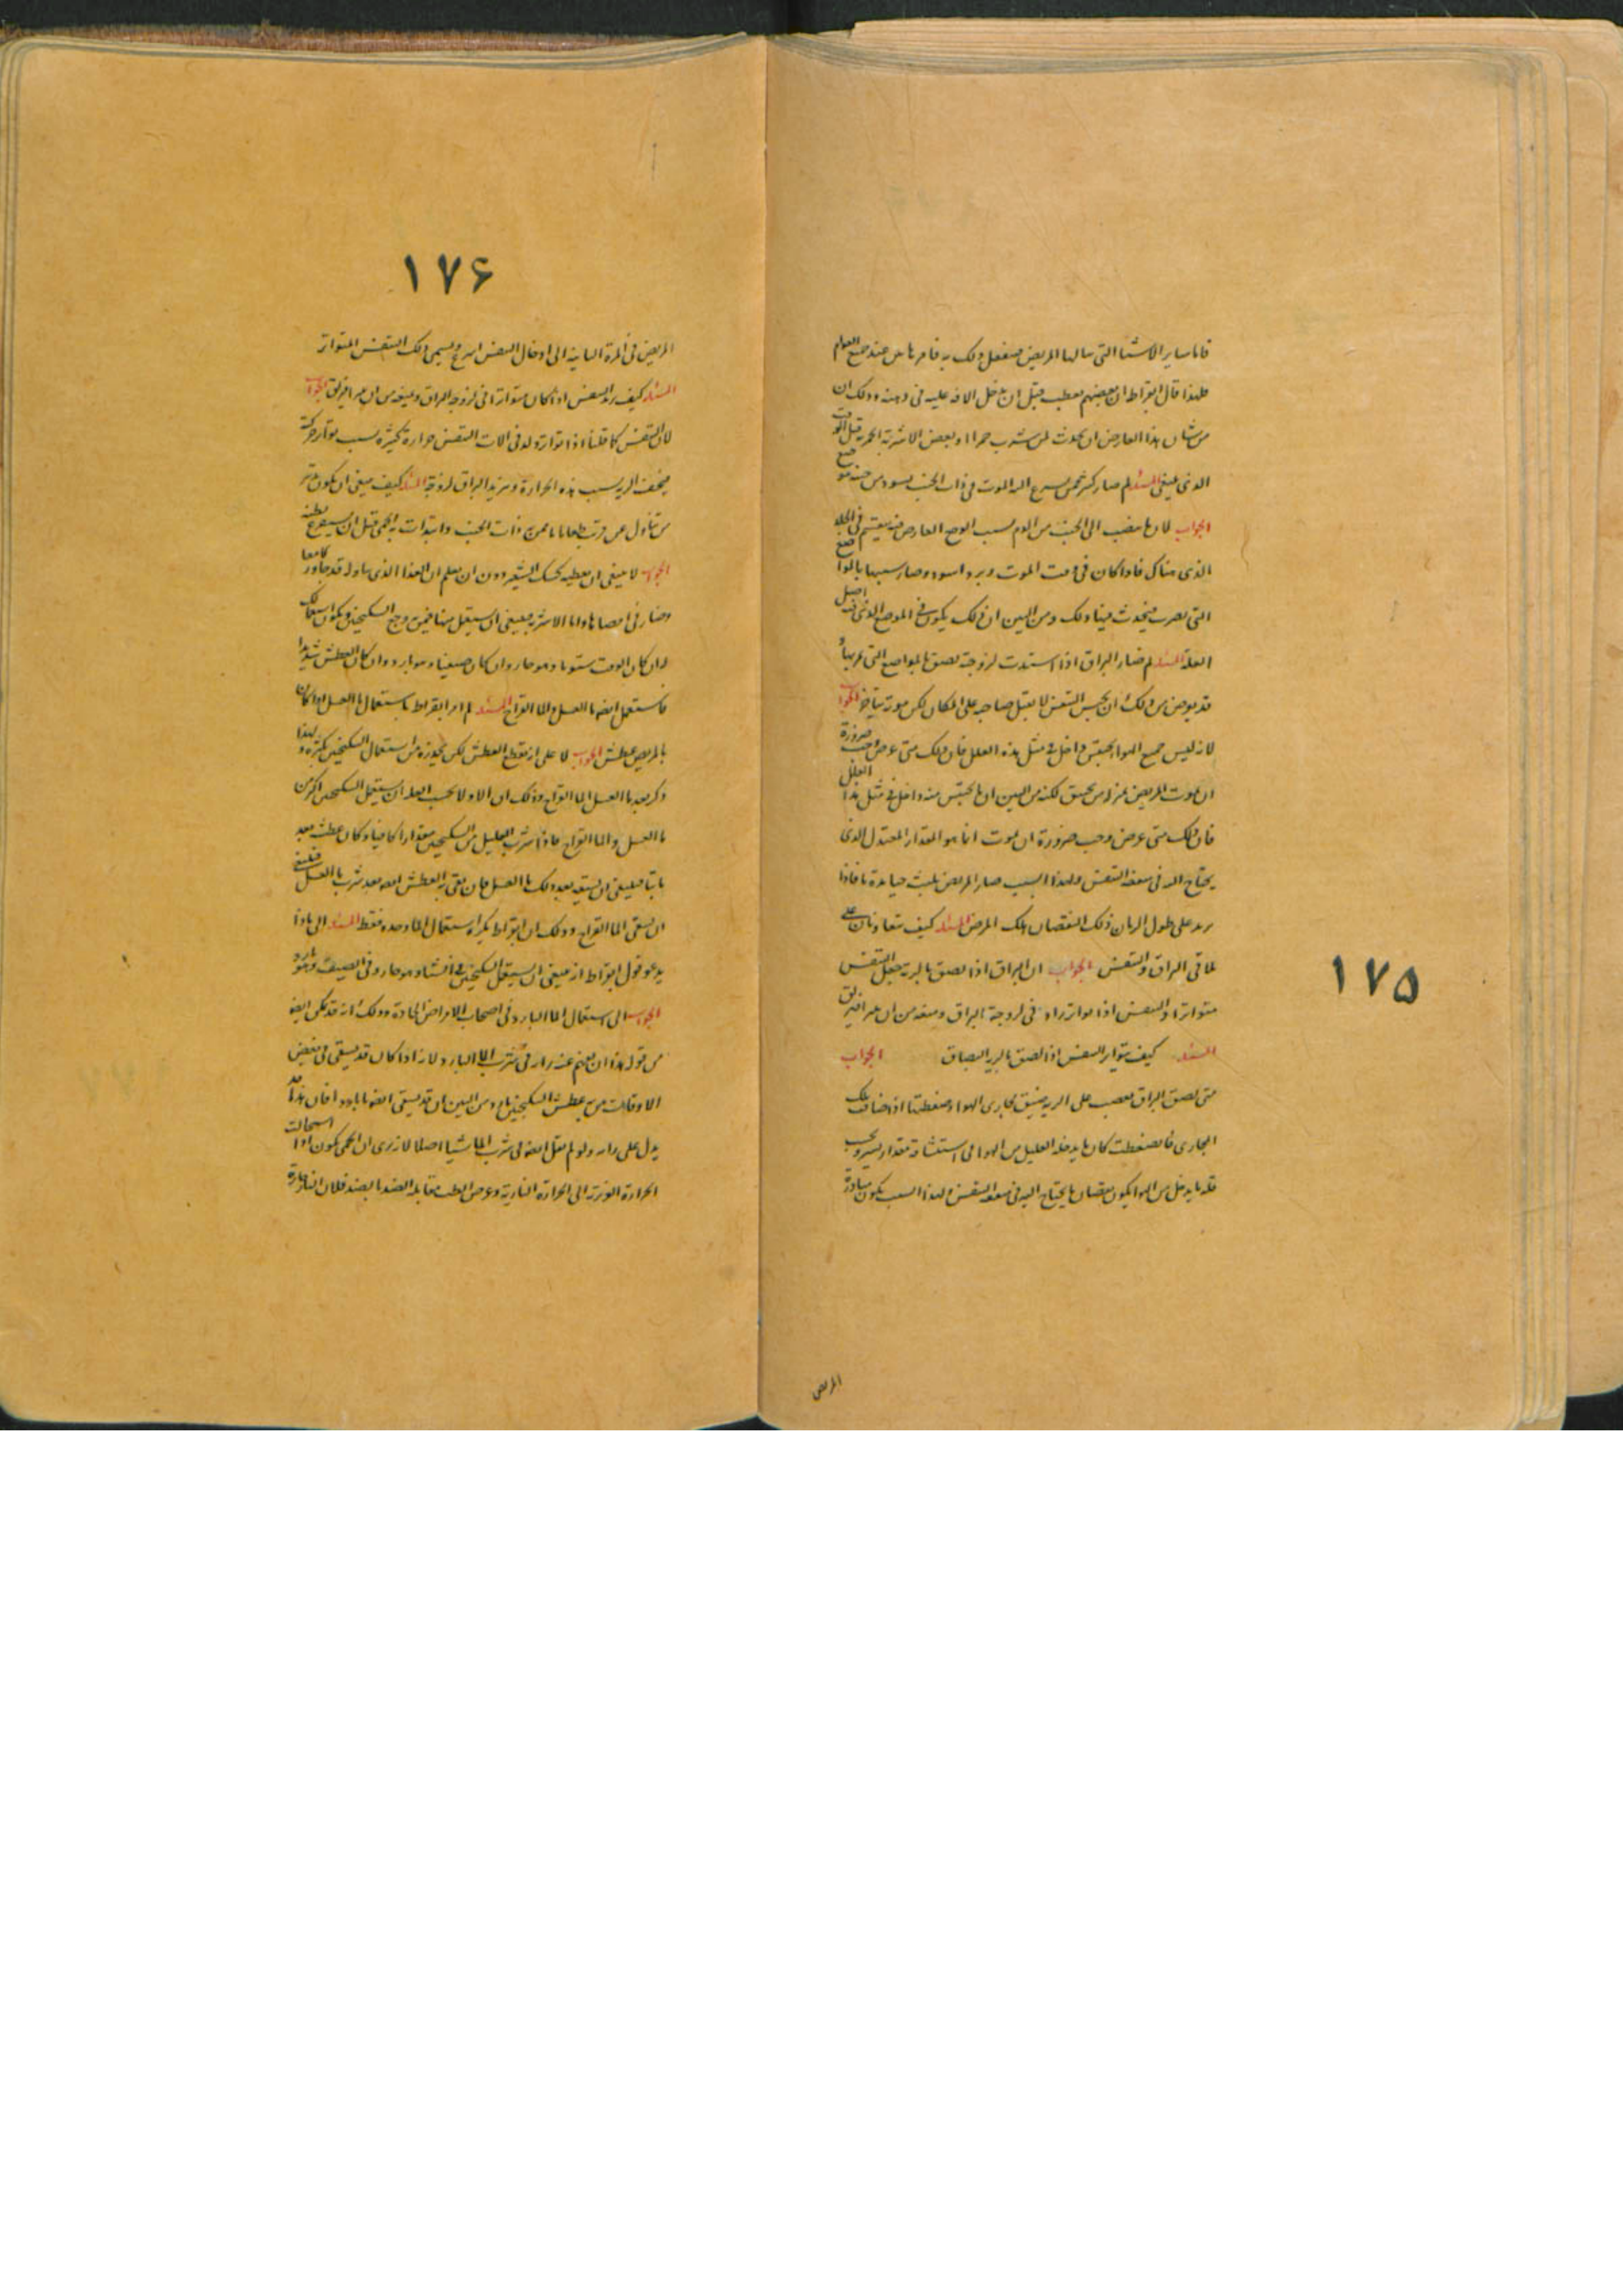 فاما ساير الاشيا التى سالها المريض فتفعل ذلك به فامرها بين عند جميع العوام
فلهذا قال ابقراط ان بعضهم يعطب قبل ان يدخل الافة عليه فى ذهنه وذلك ان
من شان هذا العارض ان يحدث لمن شرب خمرا او بعض الاشربة الخمرية قبل الوقت
الذى ينبغى المسئله لم صار كثير ممن يسرع اليه الموت فى ذات الجنب يسود من جنبه موضع
الجواب لان ما ينصب الى الجنب من الدم بسبب الوجع العارض فيه ينقسم فى الجلد
الذى هناك فاذا كان فى وقت الموت وبرد اسود وصار سببها بالمواضع
التى تضرب فيحدث فيها ذلك ومن البين ان ذلك يكون فى الموضع الذى فيه اصل
العلة المسئله لم صار البزاق اذا اشتدت لزوجته لصق بالمواضع التى يمر بها
قد يعرض من ذلك ان يحبس التنفس لا يقتل صاحبه على المكان لكن موته يتاخر الجواب
لانه ليس جميع الهوا يحتبس داخل فى مثل هذه العلل فان ذلك متى عرض وجب ضرورة
ان يموت المريض بمنزلة من يخنق لكنه من البين ان ما يحتبس منه داخل فى مثل هذا العلل
فان ذلك متى عرض وجب ضرورة ان يموت انما هو المقدار المعتدل الذى
يحتاج اليه فى منفعة التنفس ولهذا السبب صار المريض يلبث حيا مدة ما فاذا
تزيد على طول الزمان ذلك النقصان هلك المريض المسئله كيف يتعاونان على
لما فى البزاق والتنفس الجواب ان البزاق اذا لصق بالرية جعل التنفس
متواترا والتنفس اذا تواتر زاد فى لزوجة البزاق ومنعه من ان يمر افيزلق
المسئله كيف يتواتر التنفس اذا لصق بالرية البصاق الجواب
متى لصق البزاق بقصب على الرية ضيق مجارى الهوا وضغطتها اذ ضاقت تلك
المجارى فانضغطت كان ما يدخله العليل من الهوا فى استنشاقه مقدار يسير وبحسب
قلة ما يدخل من الهوا يكون نقصان ما يحتاج اليه فى منفعة التنفس ولهذا السبب يكون مبادرة
المريض
١٧٥
١٧۶
المريض فى المرة الثانية الى ادخال التنفس اسرع ويسمى ذلك التنفس المتواتر
المسئله كيف يزيد التنفس اذا كان متواترا فى لزوجة البزاق ويمنعه من ان يمر افيزلق الجواب
لان التنفس كما قلنا اذا تواتر ولد فى الات التنفس حرارة كثيرة بسبب تواتر حركته
فيجفف الرية بسبب هذه الحرارة ويزيد البزاق لزوجة المسئله كيف ينبغى ان يكون تدبير
من تناول عن قرب طعاما ما ممن به ذات الجنب وابتدات به الحمى قبل ان يستفرغ بطنه
الجواب لا ينبغى ان يعطيه كشك الشعير دون ان يعلم ان الغذا الذى تناوله قد جاوز كامعا
وصار فى امعاها واما الاشربة فينبغى ان يستعمل منها فيمن به وجع السكنجبين ويكون استعمالك
له ان كان الوقت شتويا وهو حار وان كان صيفيا وهو بارد وان كان العطش شديدا
فاستعمل ايضا ما العسل والما القراح المسئله لم امر ابقراط باستعمال ما العسل اذا كان
بالمريض عطش الجواب لا على انه يقطع العطش لكن تحرزه من استعمال السكنجبين بكثرة ولهذا
ذكر بعد ما العسل الما القراح وذلك ان الاولا بحسب العلة ان يستعمل السكنجبين اكثر من
ما العسل والما القراح فاذا شرب العليل من السكنجبين مقدارا كافيا وكان عطشه بعد
باقيا فينبغى ان يسقيه بعد ذلك ما العسل فان بقى به العطش ايضا بعد شرب ما العسل فينبغى
ان يسقى الما القراح وذلك ان ابقراط يكره استعمال الما وحده فقط المسئله الى ماذا
يدعو قول ابقراط انه ينبغى ان يستعمل السكنجبين فى الشتا وهو حار وفى الصيف وهو بارد
الجواب الى استعمال الما البارد فى اصحاب الامراض الحادة وذلك انه قد يمكن ايضا
من قوله هذا ان يفهم عنه رايه فى شرب الما البارد لانه اذا كان قد يسقى فى بعض
الاوقات من به عطش السكنجبين باردا ومن البين ان قد يسقى ايضا ما باردا فان هذا قد
يدل على رايه ولو لم يقل ايضا فى شرب الما شيا اصلا لانه يرى ان الحمى يكون اذا استحالت
الحرارة الغريزية الى الحرارة النارية وغرض الطب مقابلة الضد بالضد فلان النارية حارة